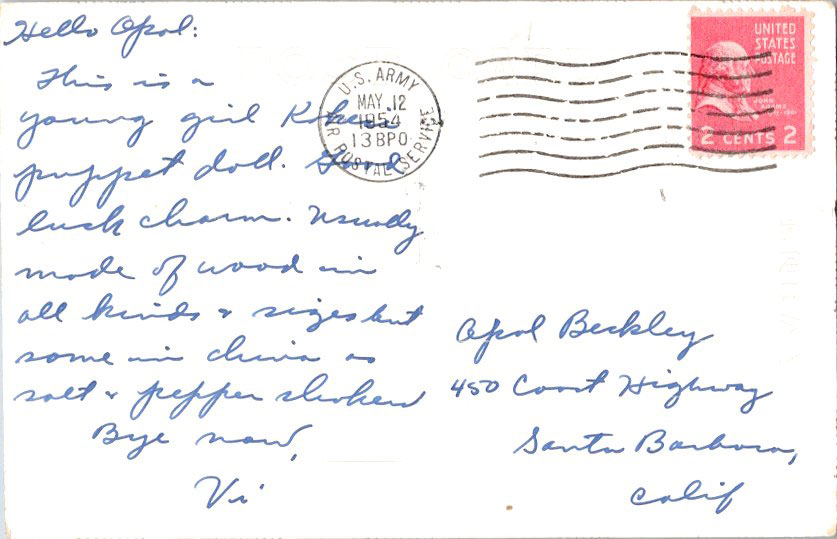 Hello Opal:
This is a
young girl
puppet doll. Good
luck charm. Usually
made of wood in
all kinds & sizes but
some in china as
salt & pepper shakers
Bye now,
Vi
U.S. ARMY
MAY 12
1954
13 BPO
AIR POSTAL SERVICE
UNITED
STATES
POSTAGE
JOHN
2 CENTS 2
Opal Beckley
450 Coast Highway
Santa Barbara,
Calif